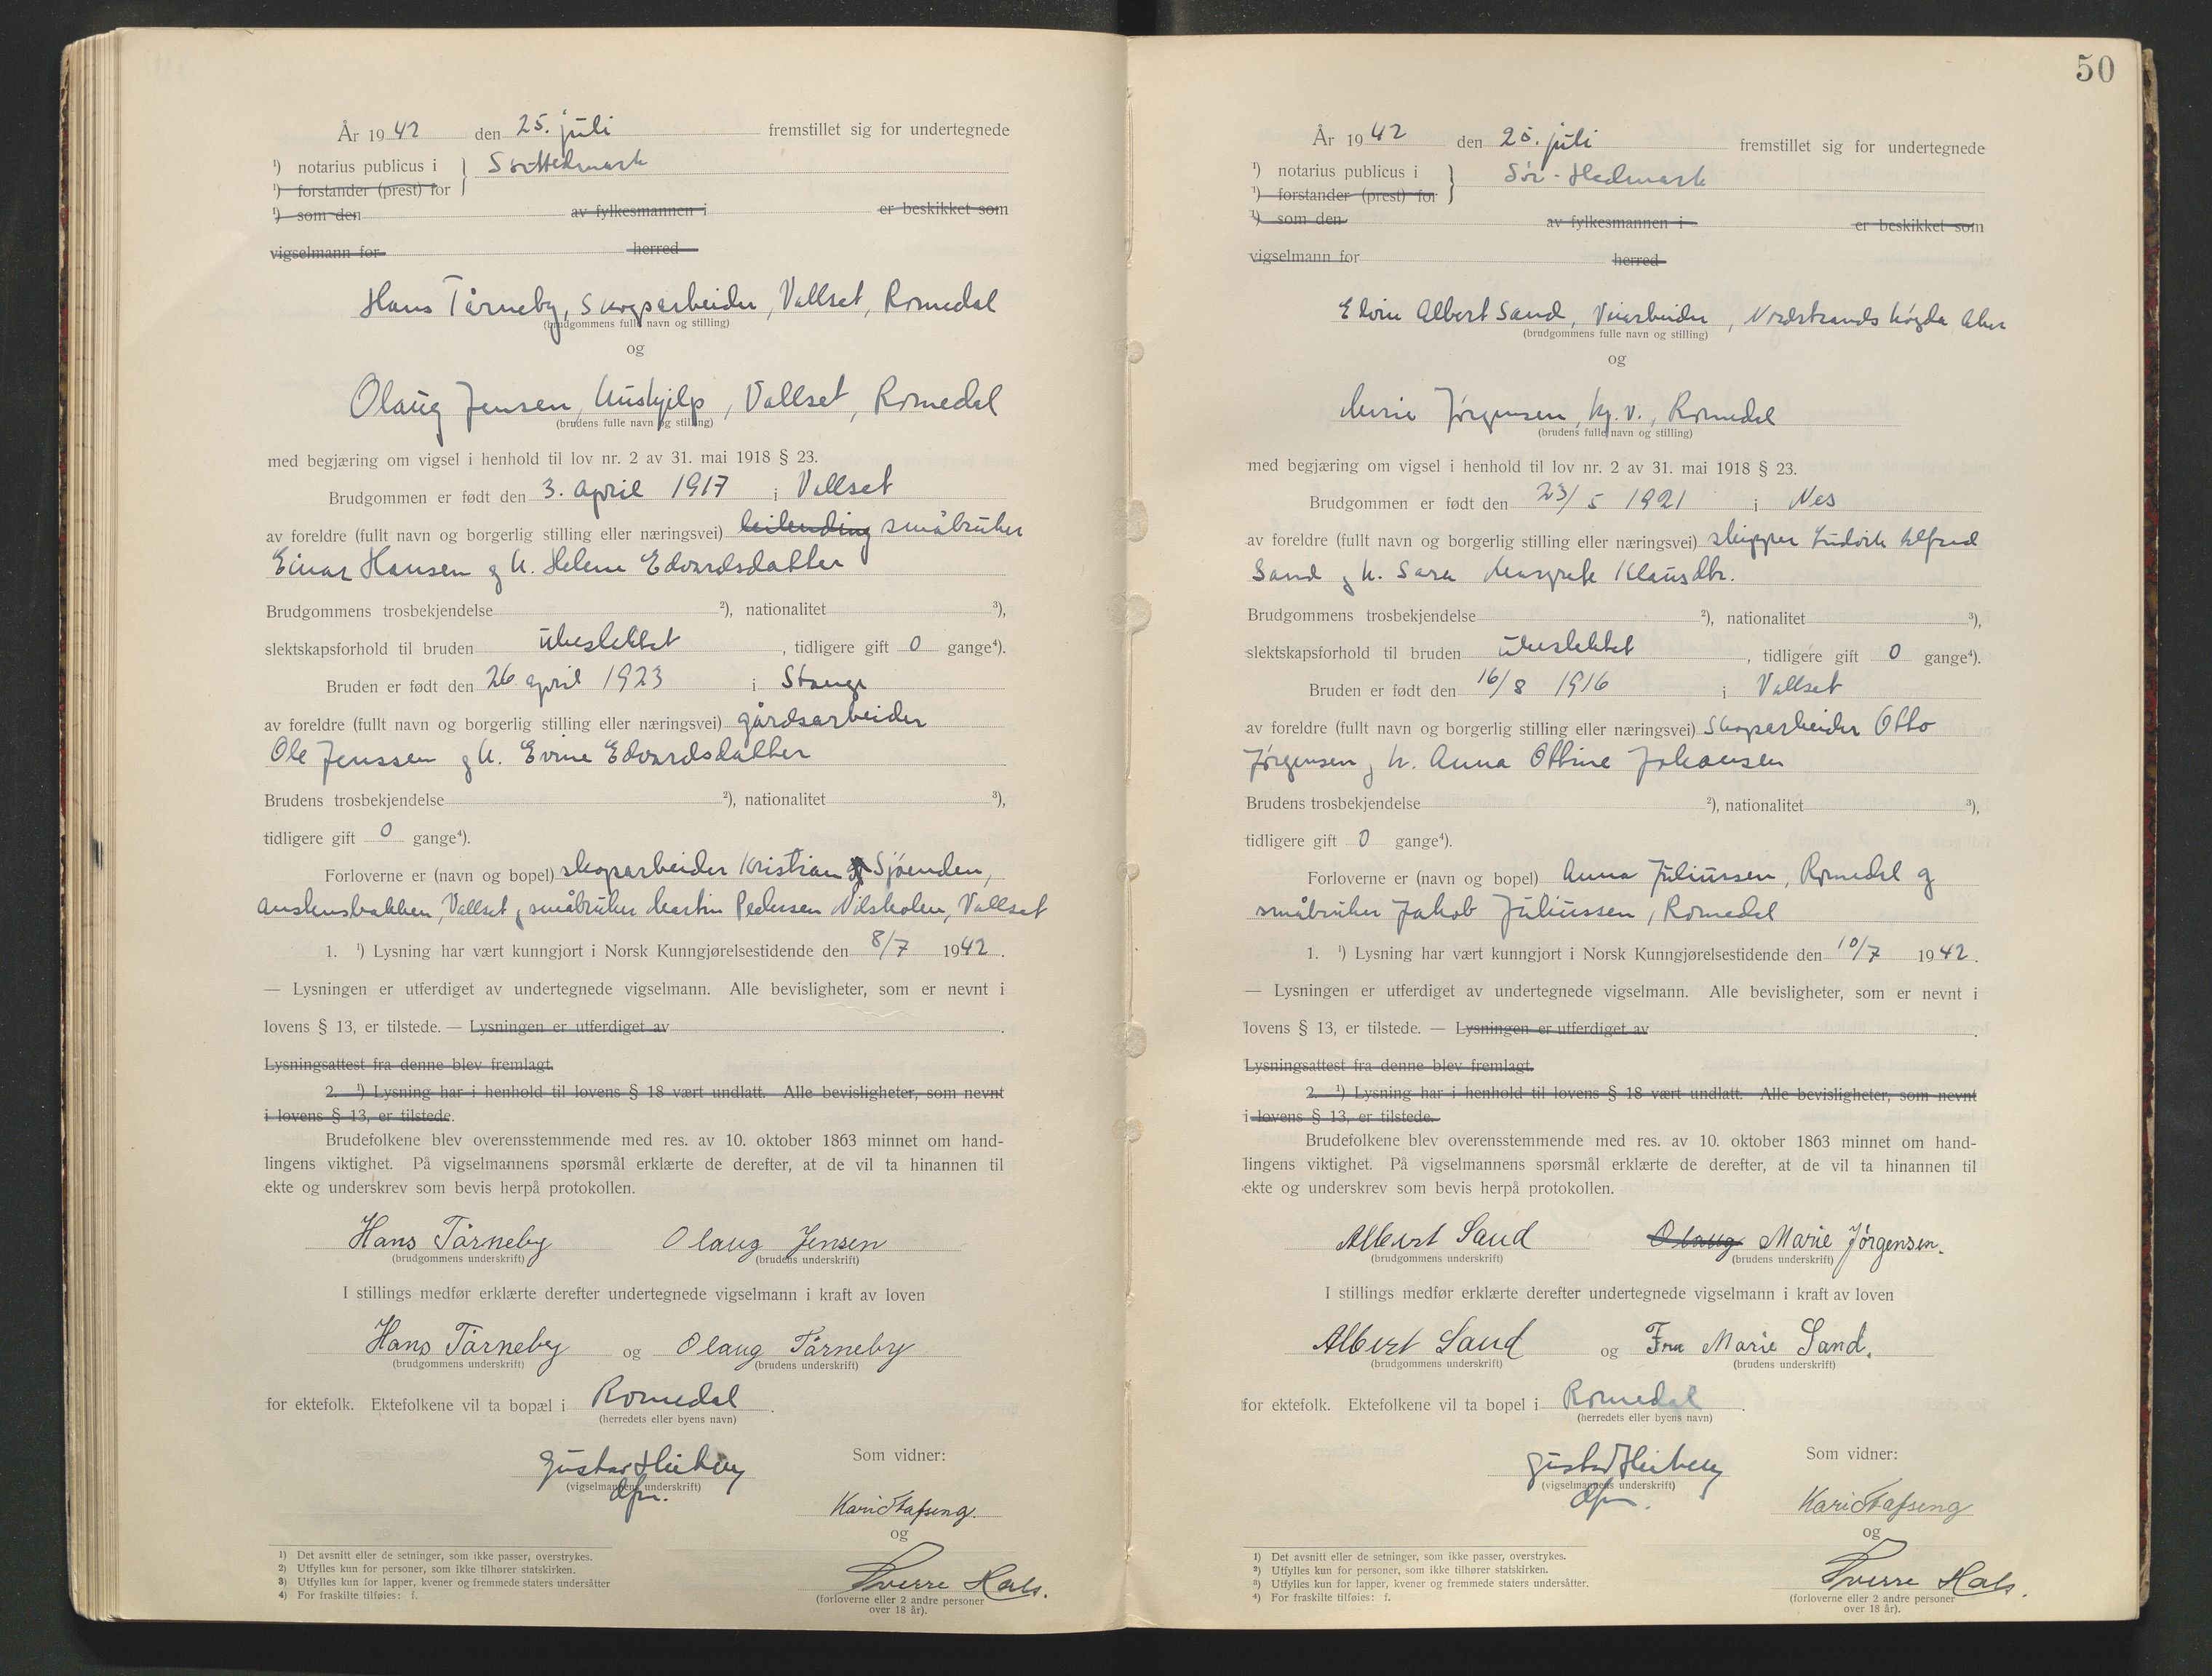 År 1942 den 25. juli fremstillet sig for undertegnede
¹) notarius publicus i } Sør-Hedmark
¹) forstander (prest) for
¹) som den av fylkesmannen i er beskikket som
vigselmann for herred
Hans Tårneby, Skogsarbeider, Vallset, Romedal
(brudgommens fulle navn og stilling)
og
Olaug Jensen, hushjelp, Vallset, Romedal
(brudens fulle navn og stilling)
med begjæring om vigsel i henhold til lov nr. 2 av 31. mai 1918 § 23.
Brudgommen er født den 3. april 1917 i Vallset
av foreldre (fullt navn og borgerlig stilling eller næringsvei) leilending småbruker
Einar Hansen og h. Helene Edvardsdatter
Brudgommens trosbekjendelse ²), nationalitet ³),
slektskapsforhold til bruden ubeslektet, tidligere gift 0 gange⁴).
Bruden er født den 26 april 1923 i Stange
av foreldre (fullt navn og borgerlig stilling eller næringsvei) gårdsarbeider
Ole Jenssen og h. Evine Edvardsdatter
Brudens trosbekjendelse ²), nationalitet ³),
tidligere gift 0 gange⁴).
Forloverne er (navn og bopel) skogsarbeider Kristian Sjøenden,
Vallset og småbruker Martin Pedersen Nilskolen, Vallset
1. ¹) Lysning har vært kunngjort i Norsk Kunngjørelsestidende den 8/7 1942.
— Lysningen er utferdiget av undertegnede vigselmann. Alle bevisligheter, som er nevnt i
lovens § 13, er tilstede. — Lysningen er utferdiget av .
Lysningsattest fra denne blev fremlagt.
2. ¹) Lysning har i henhold til lovens § 18 vært undlatt. Alle bevisligheter, som nevnt
i lovens § 13, er tilstede.
Brudefolkene blev overensstemmende med res. av 10. oktober 1863 minnet om hand-
lingens viktighet. På vigselmannens spørsmål erklærte de derefter, at de vil ta hinannen til
ekte og underskrev som bevis herpå protokollen.
Hans Tårneby Olaug Jensen
(brudgommens underskrift) (brudens underskrift)
I stillings medfør erklærte derefter undertegnede vigselmann i kraft av loven
Hans Tårneby og Olaug Tårneby
(brudgommens underskrift) (brudens underskrift)
for ektefolk. Ektefolkene vil ta bopæl i Romedal.
(herredets eller byens navn)
Gustav Heiberg
(vigselmannens underskrift)
dfm.
Som vidner:
Kari Stafseng.
og
Sverre Hals.
(forloverne eller 2 andre personer
over 18 år).
1) Det avsnitt eller de setninger, som ikke passer, overstrykes.
2) Utfylles kun for personer, som ikke tilhører statskirken.
3) Utfylles kun for lapper, kvener og fremmede staters undersåtter
4) For fraskilte tilføies: f.
50
År 1942 den 25. juli fremstillet sig for undertegnede
¹) notarius publicus i } Sør-Hedmark
¹) forstander (prest) for
¹) som den av fylkesmannen i er beskikket som
vigselmann for herred
Edvin Albert Sand, Veiarbeider, Nordstrandshøgda Aker
(brudgommens fulle navn og stilling)
og
Marie Jørgensen, hj. v., Romedal
(brudens fulle navn og stilling)
med begjæring om vigsel i henhold til lov nr. 2 av 31. mai 1918 § 23.
Brudgommen er født den 23/5 1921 i Nes
av foreldre (fullt navn og borgerlig stilling eller næringsvei) skipper Ludvik Alfred
Sand og h. Sara Margrete Klausdtr.
Brudgommens trosbekjendelse ²), nationalitet ³),
slektskapsforhold til bruden ubeslektet, tidligere gift 0 gange⁴).
Bruden er født den 16/8 1916 i Vallset
av foreldre (fullt navn og borgerlig stilling eller næringsvei) Skogsarbeider Otto
Jørgensen og h. Anna Ottine Johansen
Brudens trosbekjendelse ²), nationalitet ³),
tidligere gift 0 gange⁴).
Forloverne er (navn og bopel) Anna Juliussen, Romedal og
småbruker Jakob Juliussen, Romedal
1. ¹) Lysning har vært kunngjort i Norsk Kunngjørelsestidende den 10/7 1942.
— Lysningen er utferdiget av undertegnede vigselmann. Alle bevisligheter, som er nevnt i
lovens § 13, er tilstede. — Lysningen er utferdiget av .
Lysningsattest fra denne blev fremlagt.
2. ¹) Lysning har i henhold til lovens § 18 vært undlatt. Alle bevisligheter, som nevnt
i lovens § 13, er tilstede.
Brudefolkene blev overensstemmende med res. av 10. oktober 1863 minnet om hand-
lingens viktighet. På vigselmannens spørsmål erklærte de derefter, at de vil ta hinannen til
ekte og underskrev som bevis herpå protokollen.
Albert Sand Olaug Marie Jørgensen.
(brudgommens underskrift) (brudens underskrift)
I stillings medfør erklærte derefter undertegnede vigselmann i kraft av loven
Albert Sand og Fru Marie Sand.
(brudgommens underskrift) (brudens underskrift)
for ektefolk. Ektefolkene vil ta bopel i Romedal.
(herredets eller byens navn)
Gustav Heiberg
(vigselmannens underskrift)
dfm.
Som vidner:
Kari Stafseng
og
Sverre Hals.
(forloverne eller 2 andre personer
over 18 år).
1) Det avsnitt eller de setninger, som ikke passer, overstrykes.
2) Utfylles kun for personer, som ikke tilhører statskirken.
3) Utfylles kun for lapper, kvener og fremmede staters undersåtter.
4) For fraskilte tilføies: f.